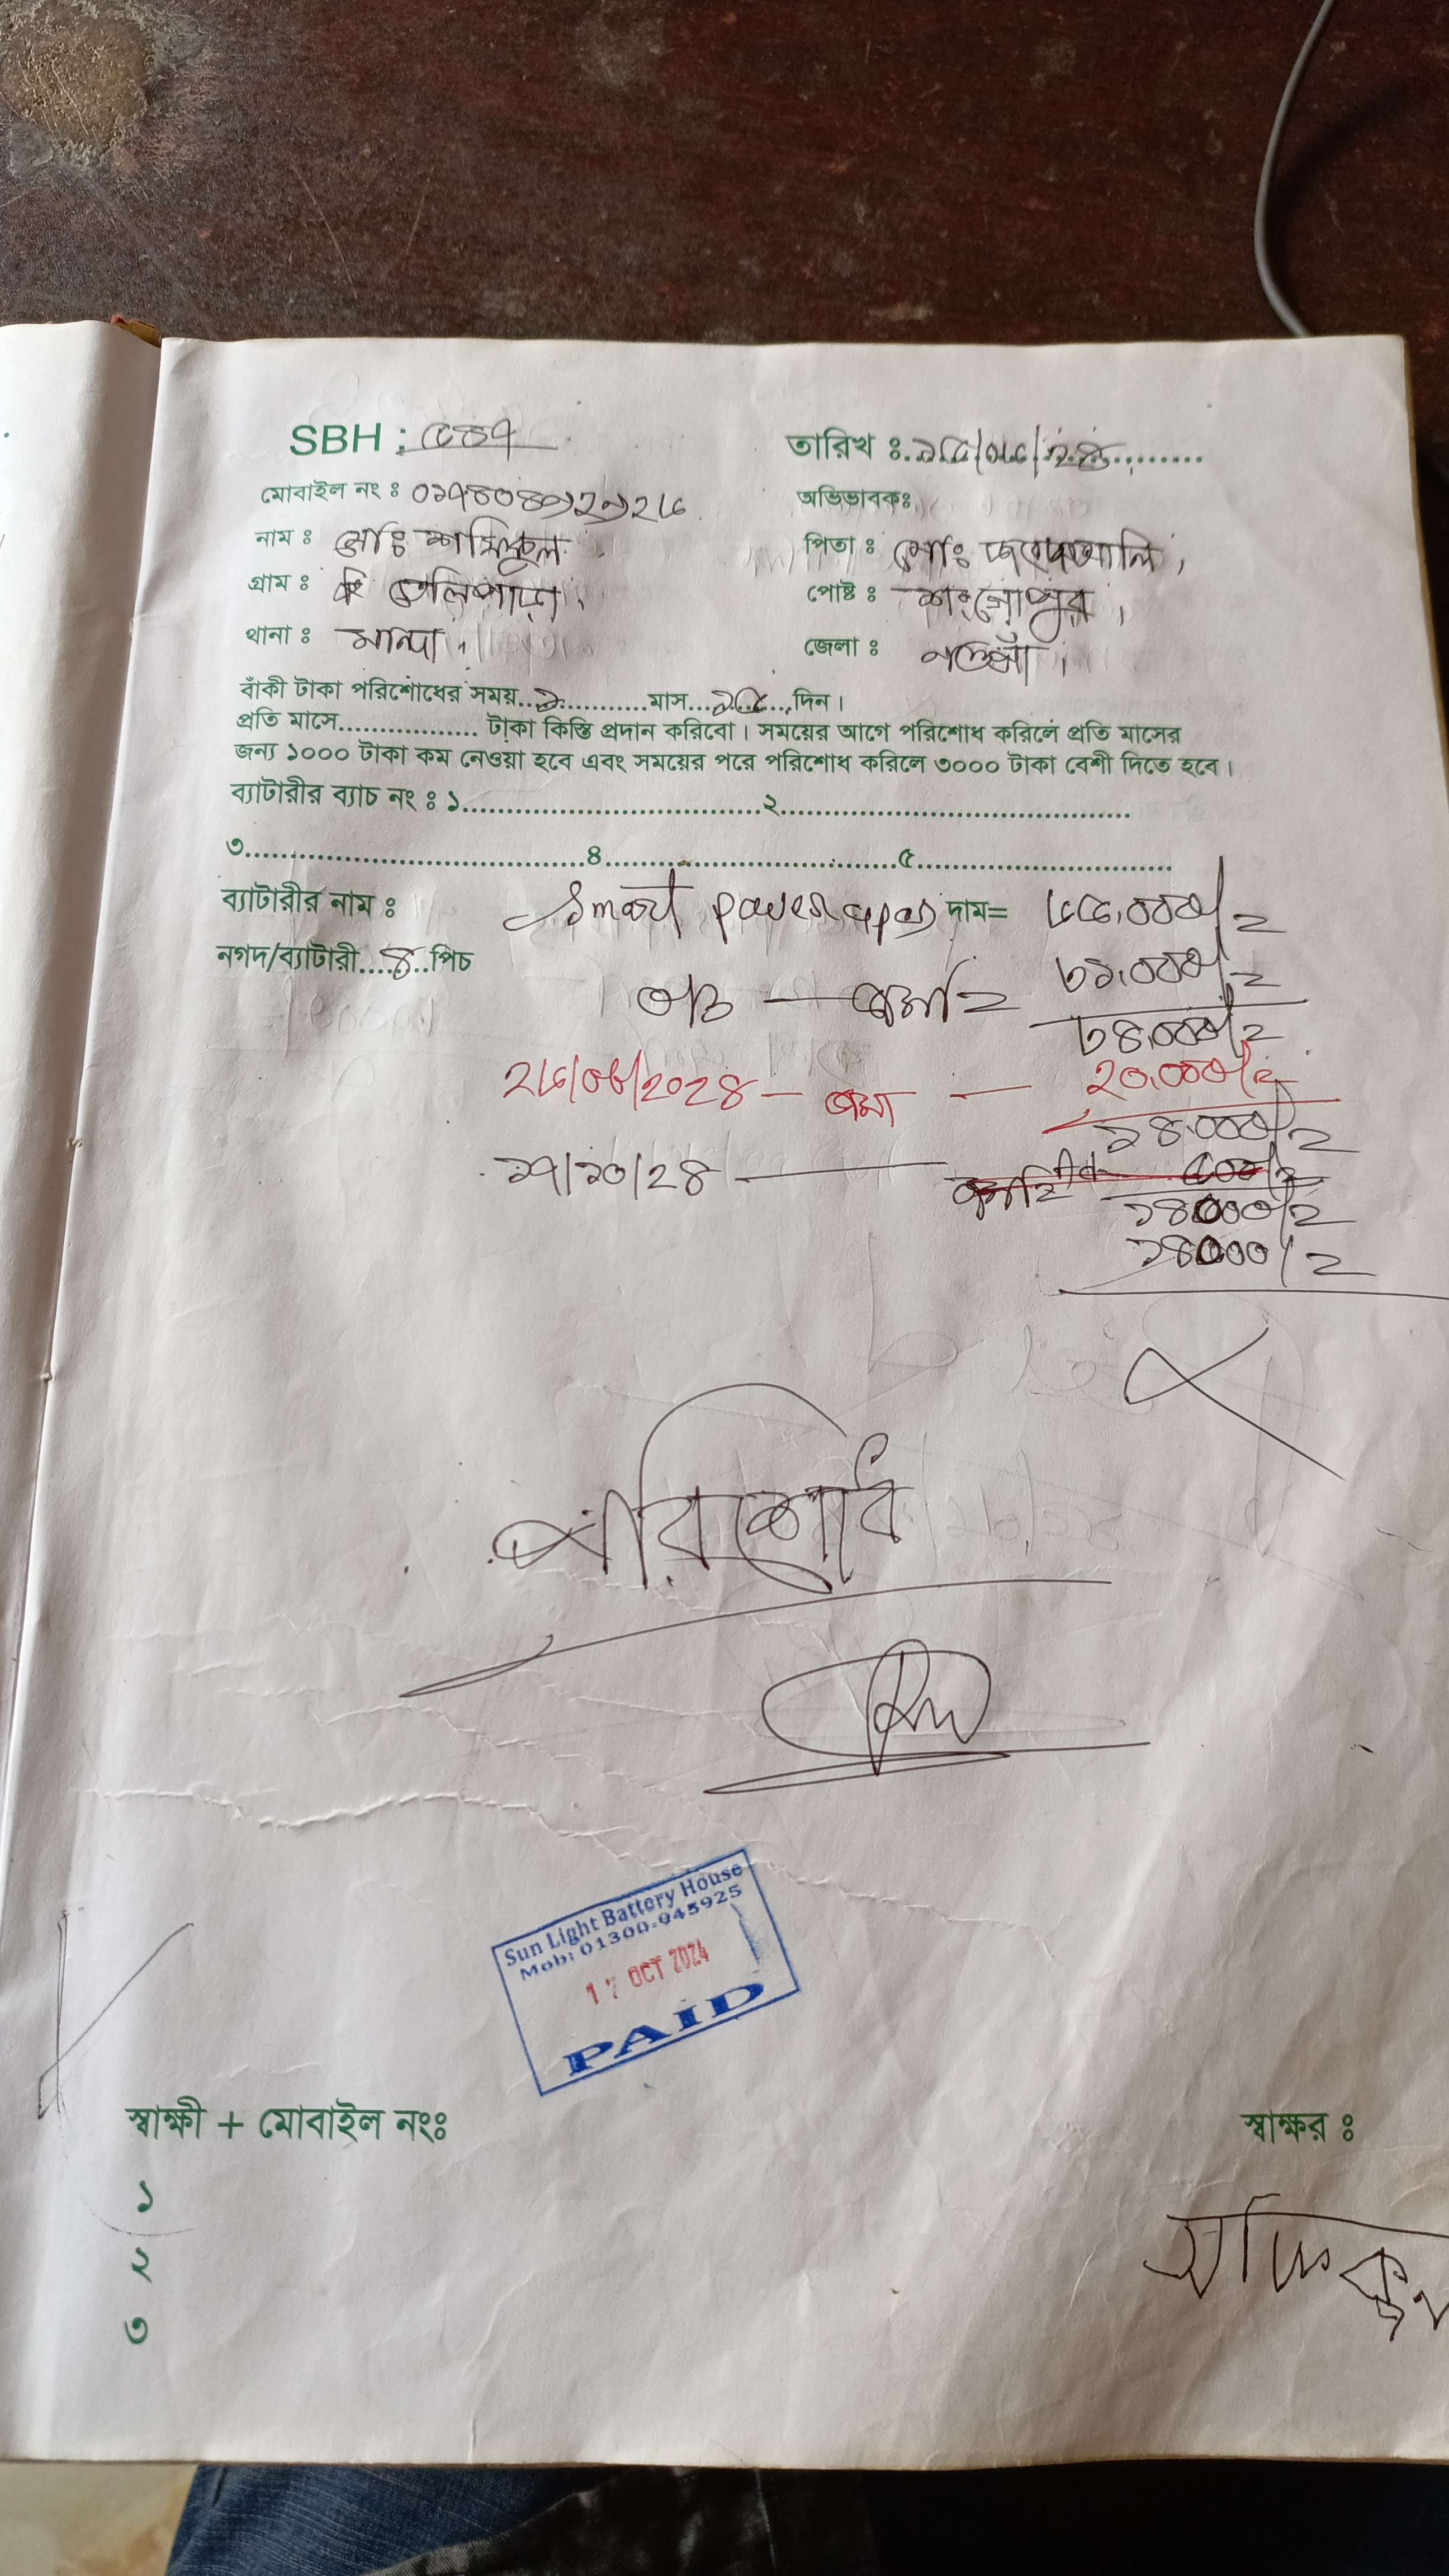 SBH : ৫৪৭
তারিখ ঃ ১৫/০৬/২৪
মোবাইল নং ঃ
অভিভাবকঃ
নাম ঃ মোঃ শফিকুল
পিতা ঃ মোঃ
গ্রাম ঃ তেলিপাড়া
পোষ্ট ঃ
থানা ঃ মান্দা
জেলা ঃ নওগাঁ
বাঁকী টাকা পরিশোধের সময়...১...মাস...১৫...দিন।
প্রতি মাসে.................. টাকা কিস্তি প্রদান করিবো। সময়ের আগে পরিশোধ করিলে প্রতি মাসের
জন্য ১০০০ টাকা কম নেওয়া হবে এবং সময়ের পরে পরিশোধ করিলে ৩০০০ টাকা বেশী দিতে হবে।
ব্যাটারীর ব্যাচ নং ঃ ১....................................২....................................
৩....................................৪....................................৫....................................
ব্যাটারীর নাম ঃ Smart power দাম= ৬৫,০০০/=
নগদ/ব্যাটারী....৪..পিচ
জমা = ৩১,০০০/=
৩৪,০০০/=
২৬/০৮/২০২৪ — জমা — ২০,০০০/=
১৪,০০০/=
১৭/১০/২৪ — ৫০০/=
১৪০০০/=
১৪০০০/=
পরিশোধ
Sun Light Battery House
Mob: 01300-945925
17 OCT 2024
PAID
স্বাক্ষী + মোবাইল নংঃ
স্বাক্ষর ঃ
১
২
৩